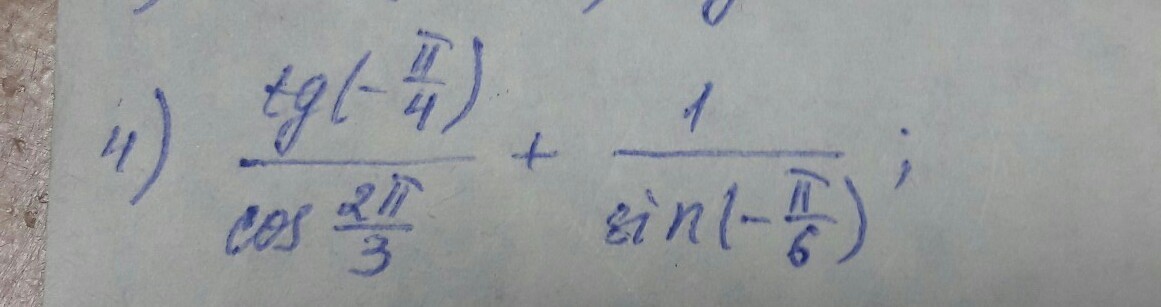 4) tg(-π/4)/cos 2π/3 + 1/sin(-π/6);